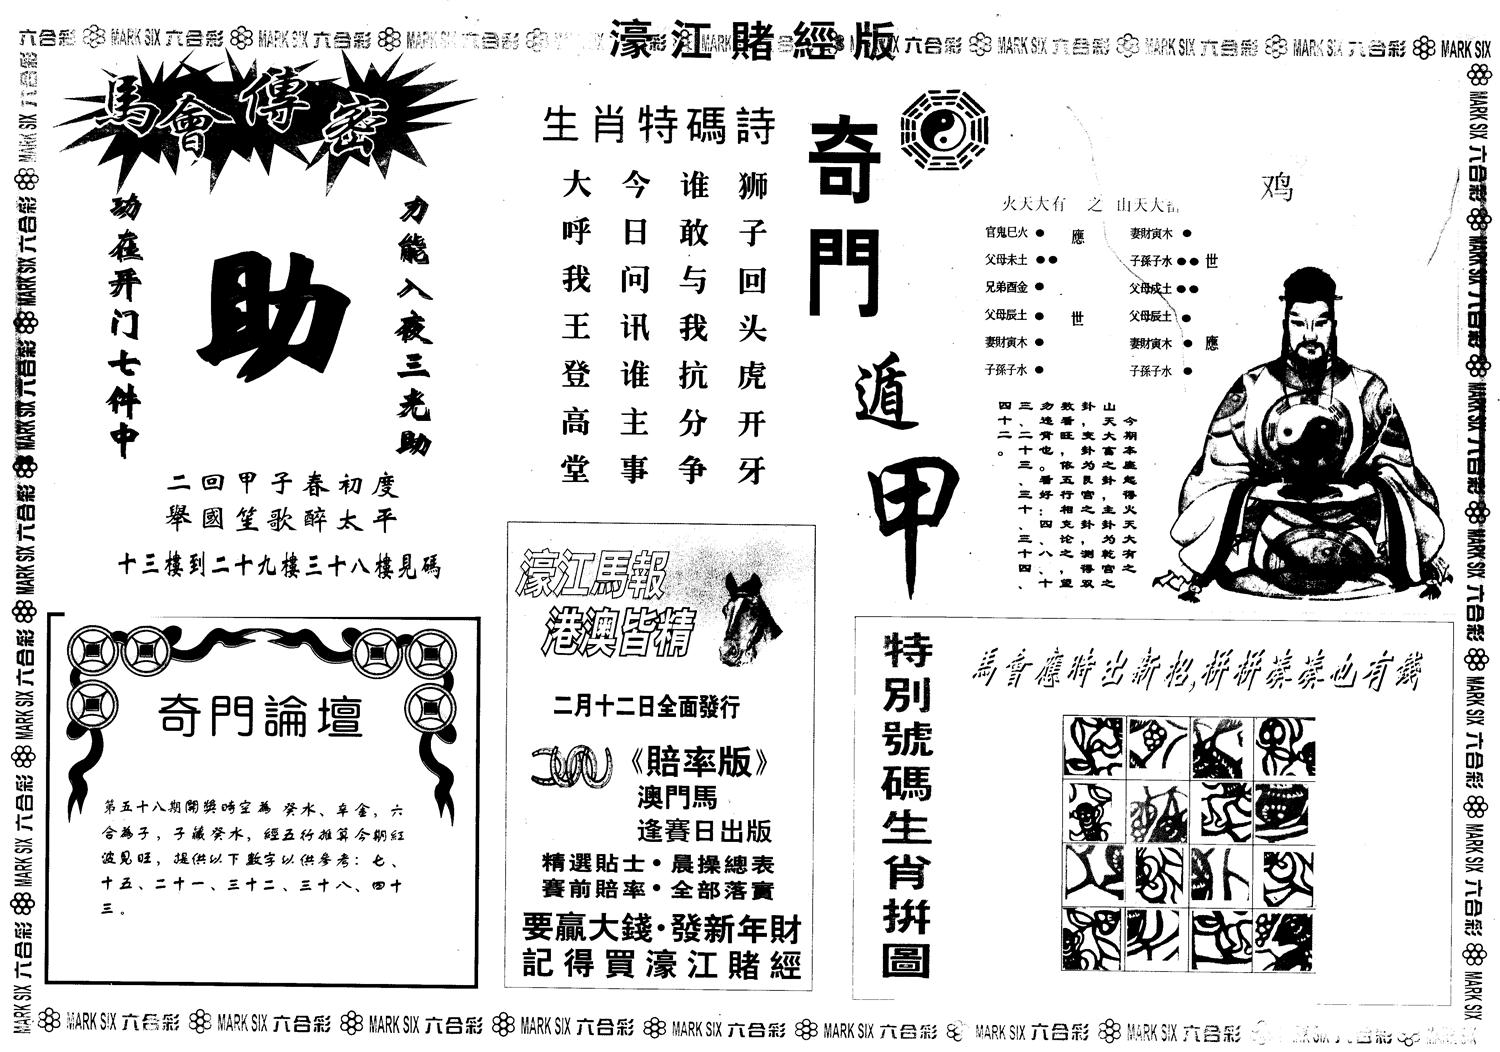 濠江賭經版
六合彩 MARK SIX 六合彩 MARK SIX 六合彩 MARK SIX 六合彩
六合彩 MARK SIX 六合彩 MARK SIX 六合彩 MARK SIX 六合彩 MARK SIX
馬會傳密
功在开门七件中
助
力能入夜三光助
二回甲子春初度
舉國笙歌醉太平
十三樓到二十九樓三十八樓見碼
生肖特碼詩
狮子回头虎开牙
谁敢与我抗分争
今日问讯谁主事
大呼我王登高堂
奇門遁甲
鸡
火天大有 之 山天大
官鬼巳火 ● 應 妻財寅木 ●
父母未土 ●● 子孫子水 ●● 世
兄弟酉金 ● 父母戌土 ●●
父母辰土 ● 世 父母辰土 ●
妻財寅木 ● 妻財寅木 ● 應
子孫子水 ● 子孫子水 ●
今期本座起得火天大有之
山天大富之卦，主卦为乾宫之
卦，变卦为艮宫之卦，测得双
数看旺，依五行相支论之，望
勿违背也。看好：四、八、十
三、二十三、三十、三十四、
四十二。
奇門論壇
第五十八期開獎時空為 癸水、辛金，六
合為子，子藏癸水，經五行推算今期紅
波見旺，提供以下數字以供參考：七、
十五、二十一、三十二、三十八、四十
三。
濠江馬報
港澳皆精
二月十二日全面發行
《賠率版》
澳門馬
逢賽日出版
精選貼士·晨操總表
賽前賠率·全部落實
要贏大錢·發新年財
記得買濠江賭經
特別號碼生肖拚圖
馬會應時出新招，拼拼湊湊也有錢
MARK SIX 六合彩 MARK SIX 六合彩 MARK SIX 六合彩 MARK SIX 六合彩 MARK SIX 六合彩 MARK SIX 六合彩 MARK SIX 六合彩 MARK SIX 六合彩